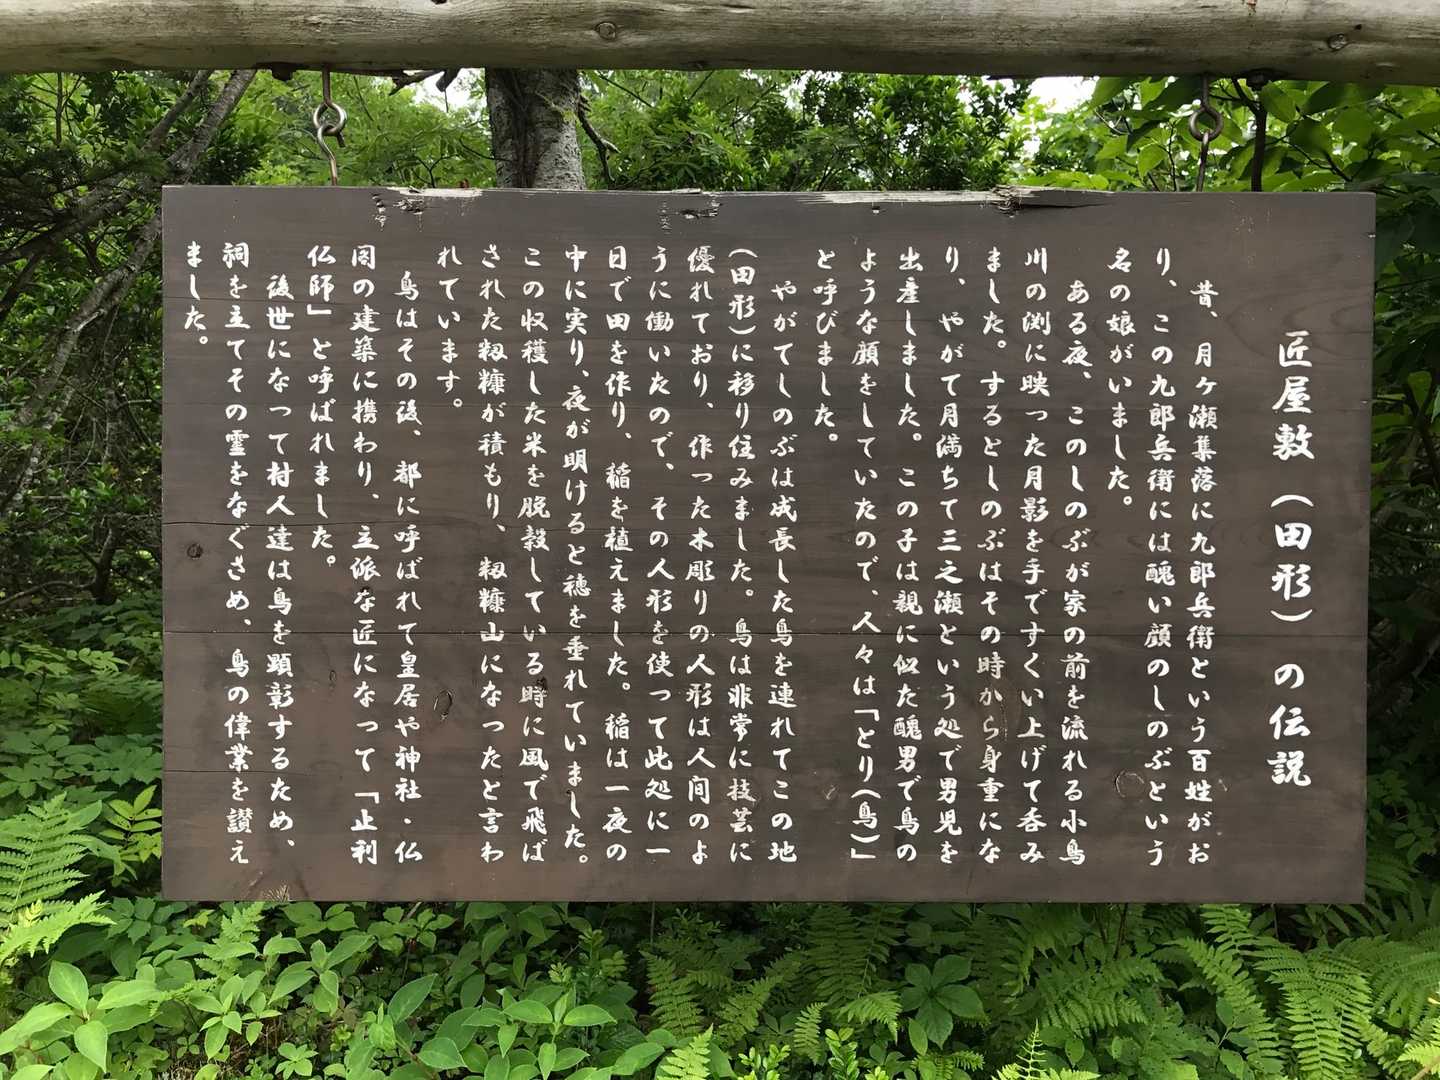 匠屋敷（田形）の伝説
昔、月ヶ瀬集落に九郎兵衛という百姓がお
り、この九郎兵衛には醜い顔のしのぶという
名の娘がいました。
ある夜、このしのぶが家の前を流れる小鳥
川の渕に映った月影を手ですくい上げて呑み
ました。するとしのぶはその時から身重にな
り、やがて月満ちて三之瀬という処で男児を
出産しました。この子は親に似た醜男で鳥の
ような顔をしていたので、人々は「とり（鳥）」
と呼びました。
やがてしのぶは成長した鳥を連れてこの地
（田形）に移り住みました。鳥は非常に技芸に
優れており、作った木彫りの人形は人間のよ
うに働いたので、その人形を使って此処に一
日で田を作り、稲を植えました。稲は一夜の
中に実り、夜が明けると穂を垂れていました。
この収穫した米を脱穀している時に風で飛ば
された籾糠が積もり、籾糠山になったと言わ
れています。
鳥はその後、都に呼ばれて皇居や神社・仏
閣の建築に携わり、立派な匠になって「止利
仏師」と呼ばれました。
後世になって村人達は鳥を顕彰するため、
祠を立てその霊をなぐさめ、鳥の偉業を讃え
ました。